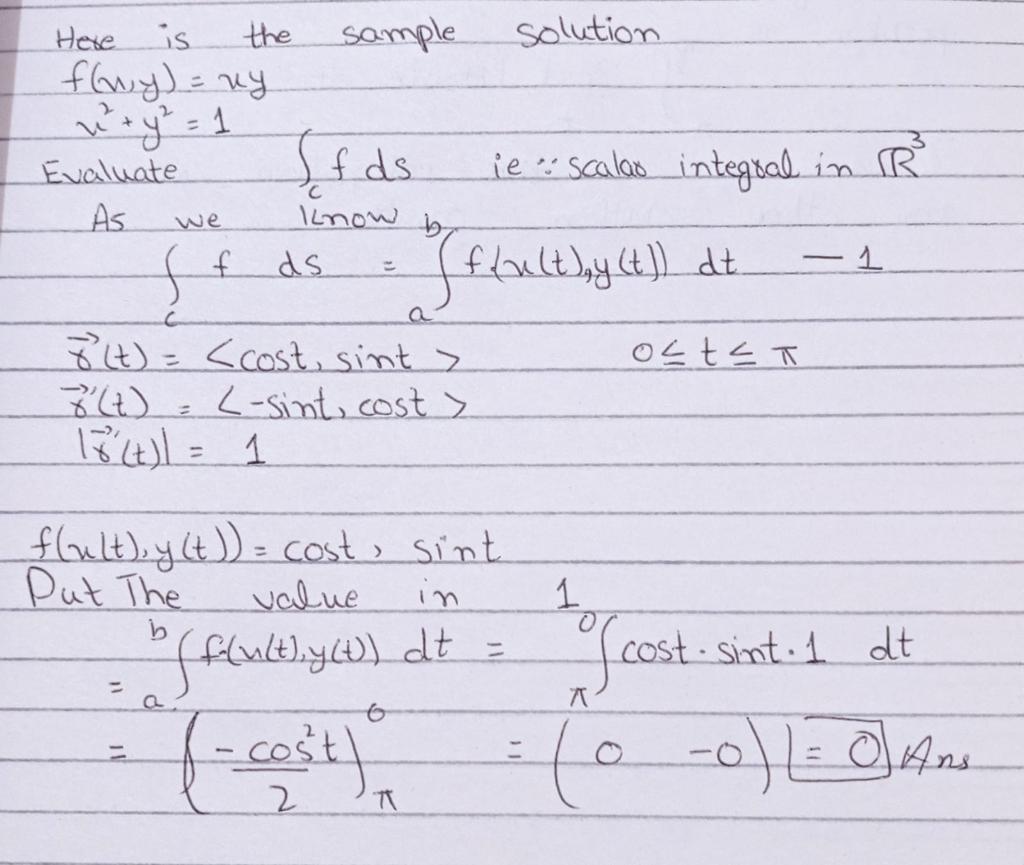 Here is the sample solution
f(x,y) = xy
x² + y² = 1
Evaluate ∫_c f ds ie ∵ scalar integral in ℝ³
As we know
∫_c f ds = ∫_a^b f(x(t),y(t)) dt — 1
r⃗(t) = <cost, sint> 0 ≤ t ≤ π
r⃗'(t) = <-sint, cost>
|r⃗'(t)| = 1
f(x(t),y(t)) = cost, sint
Put The value in 1
= ∫_a^b f(x(t),y(t)) dt = ∫_π^0 cost·sint·1 dt
= (-cos²t/2)_π^0 = (0 -0) = 0 Ans